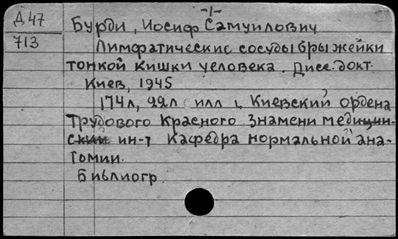 Д 47
713
Бурди, Иосиф Самуилович
Лимфатические сосуды брыжейки
тонкой кишки человека. Дисс. докт.
Киев, 1945
174л, 22л илл (Киевский ордена
Трудового Красного Знамени медицин-
ский ин-т Кафедра нормальной ана-
томии.
Библиогр.